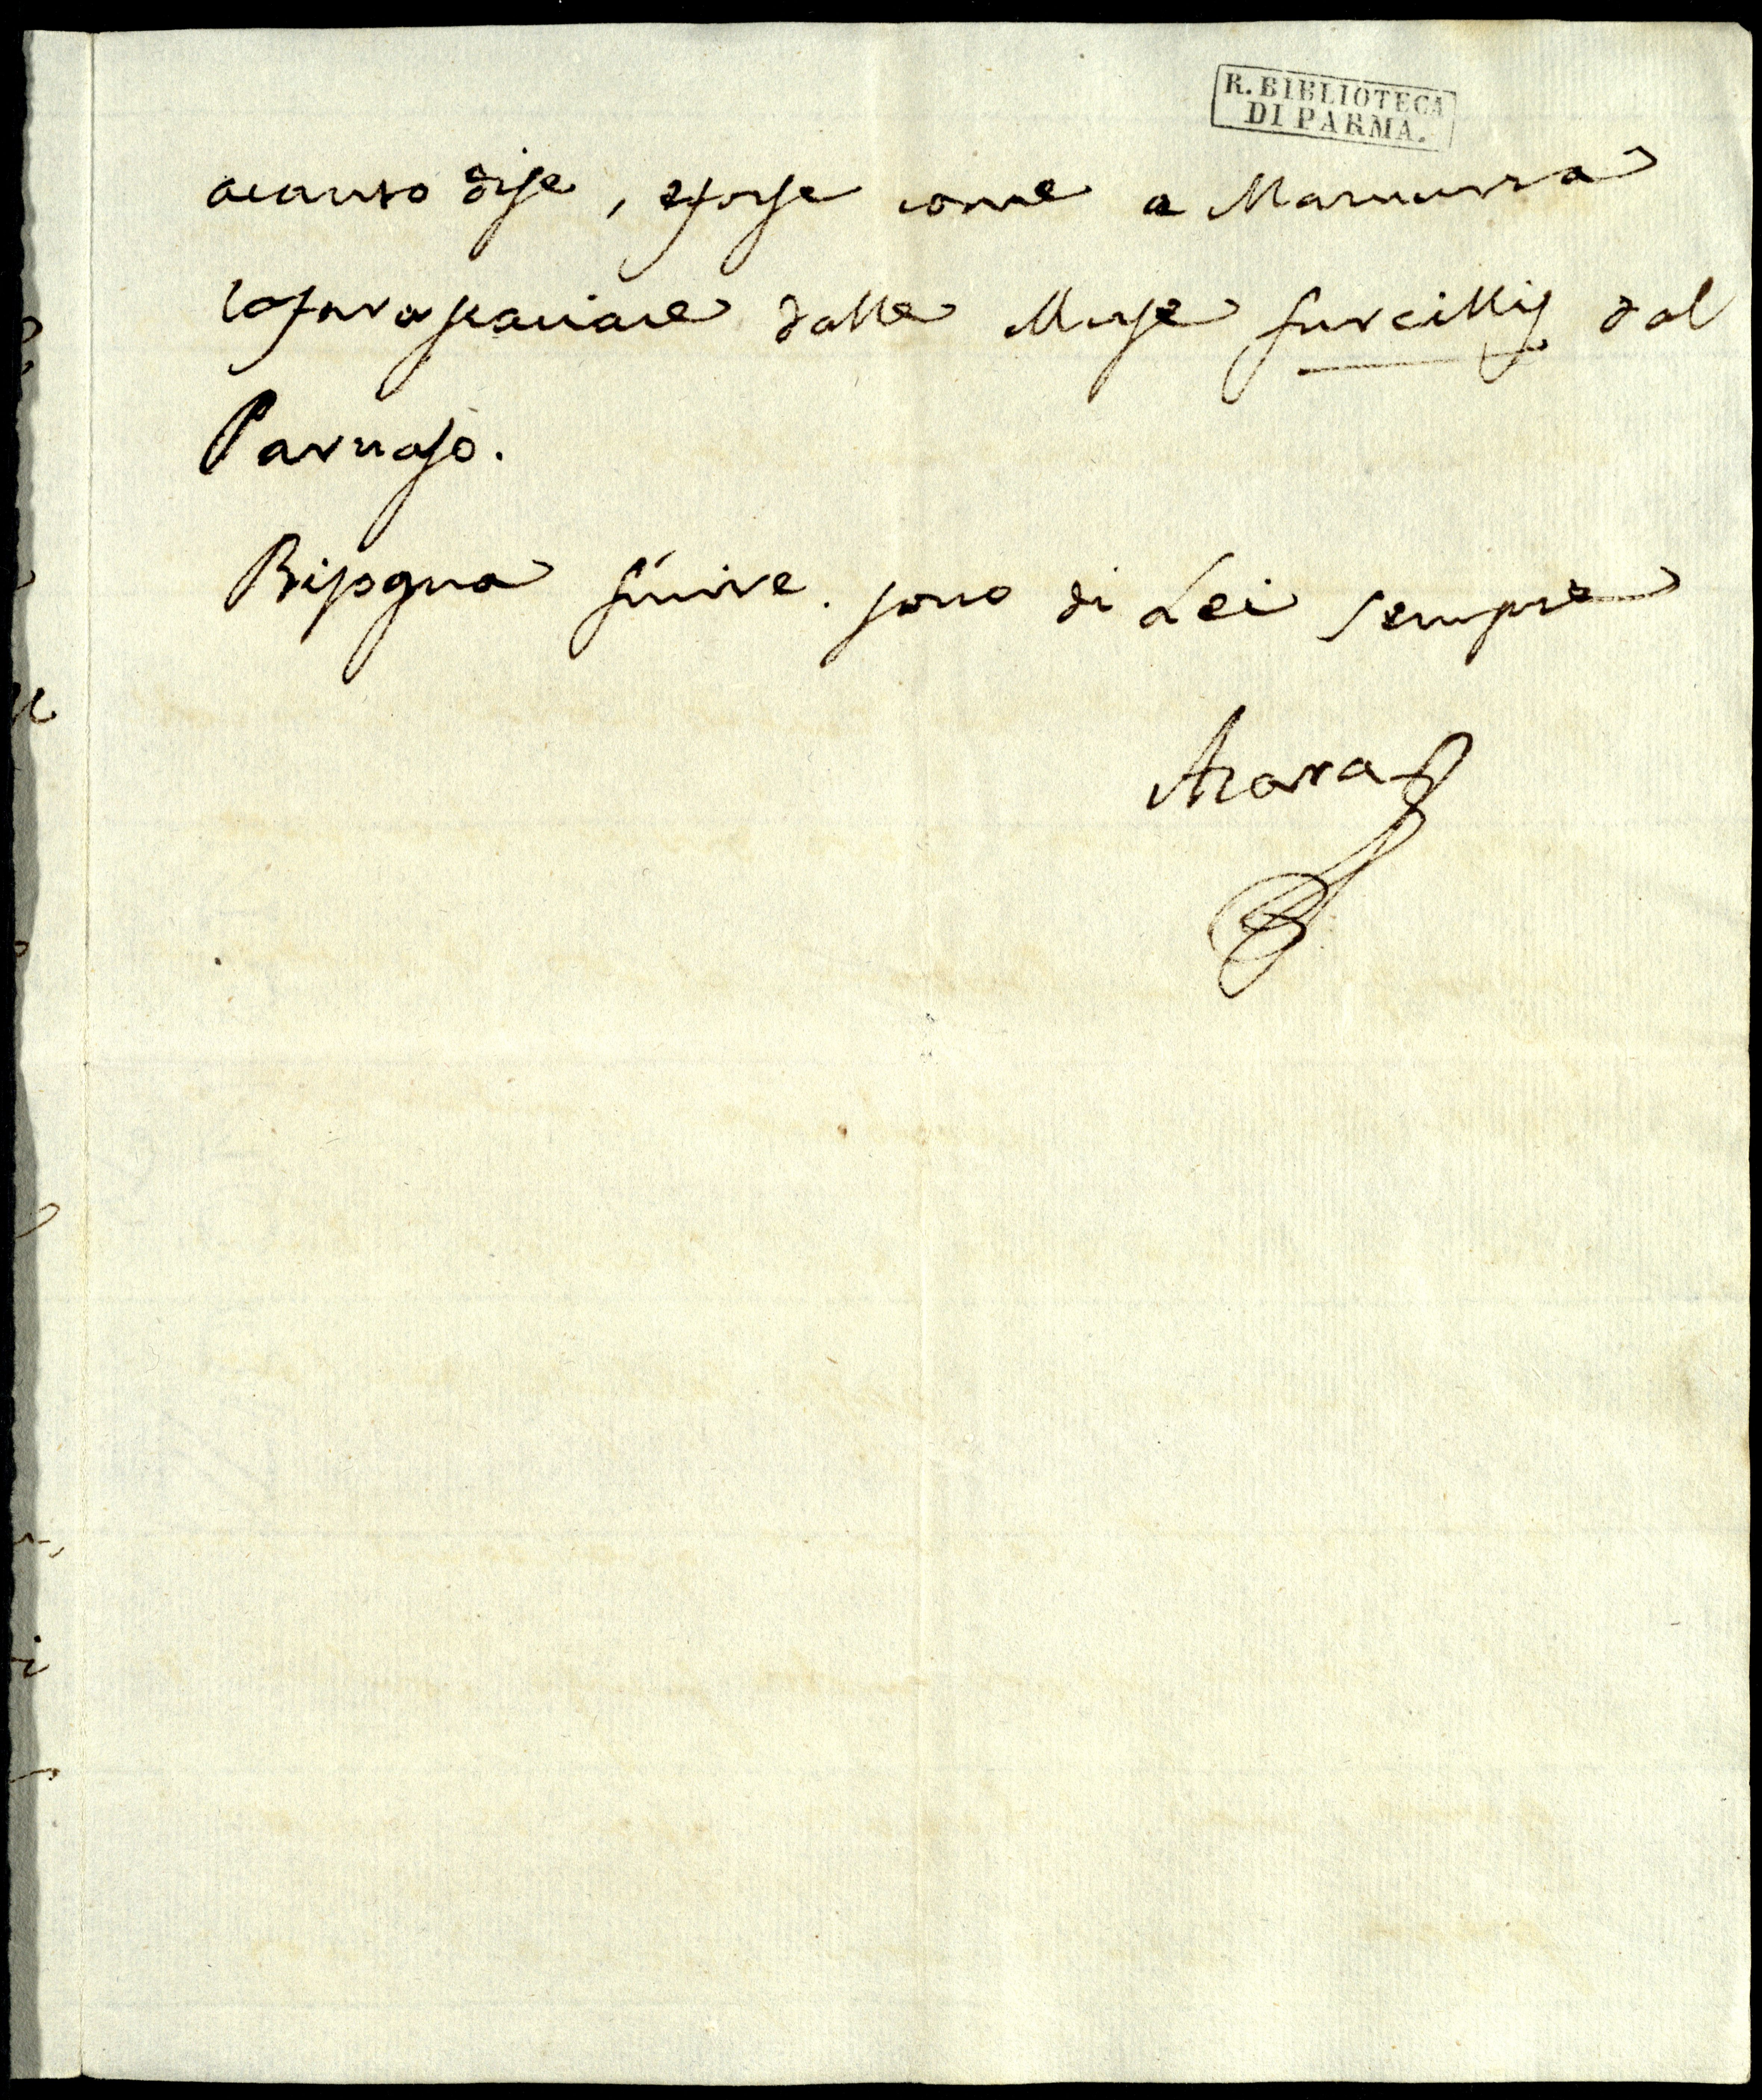 R. BIBLIOTECA
DI PARMA.
acanto di se, e forse come a Mamurra
lo farà scaciare dalle Muse furcillis dal
Parnaso.
Bisogna finire. sono di Lei sempre
Azara